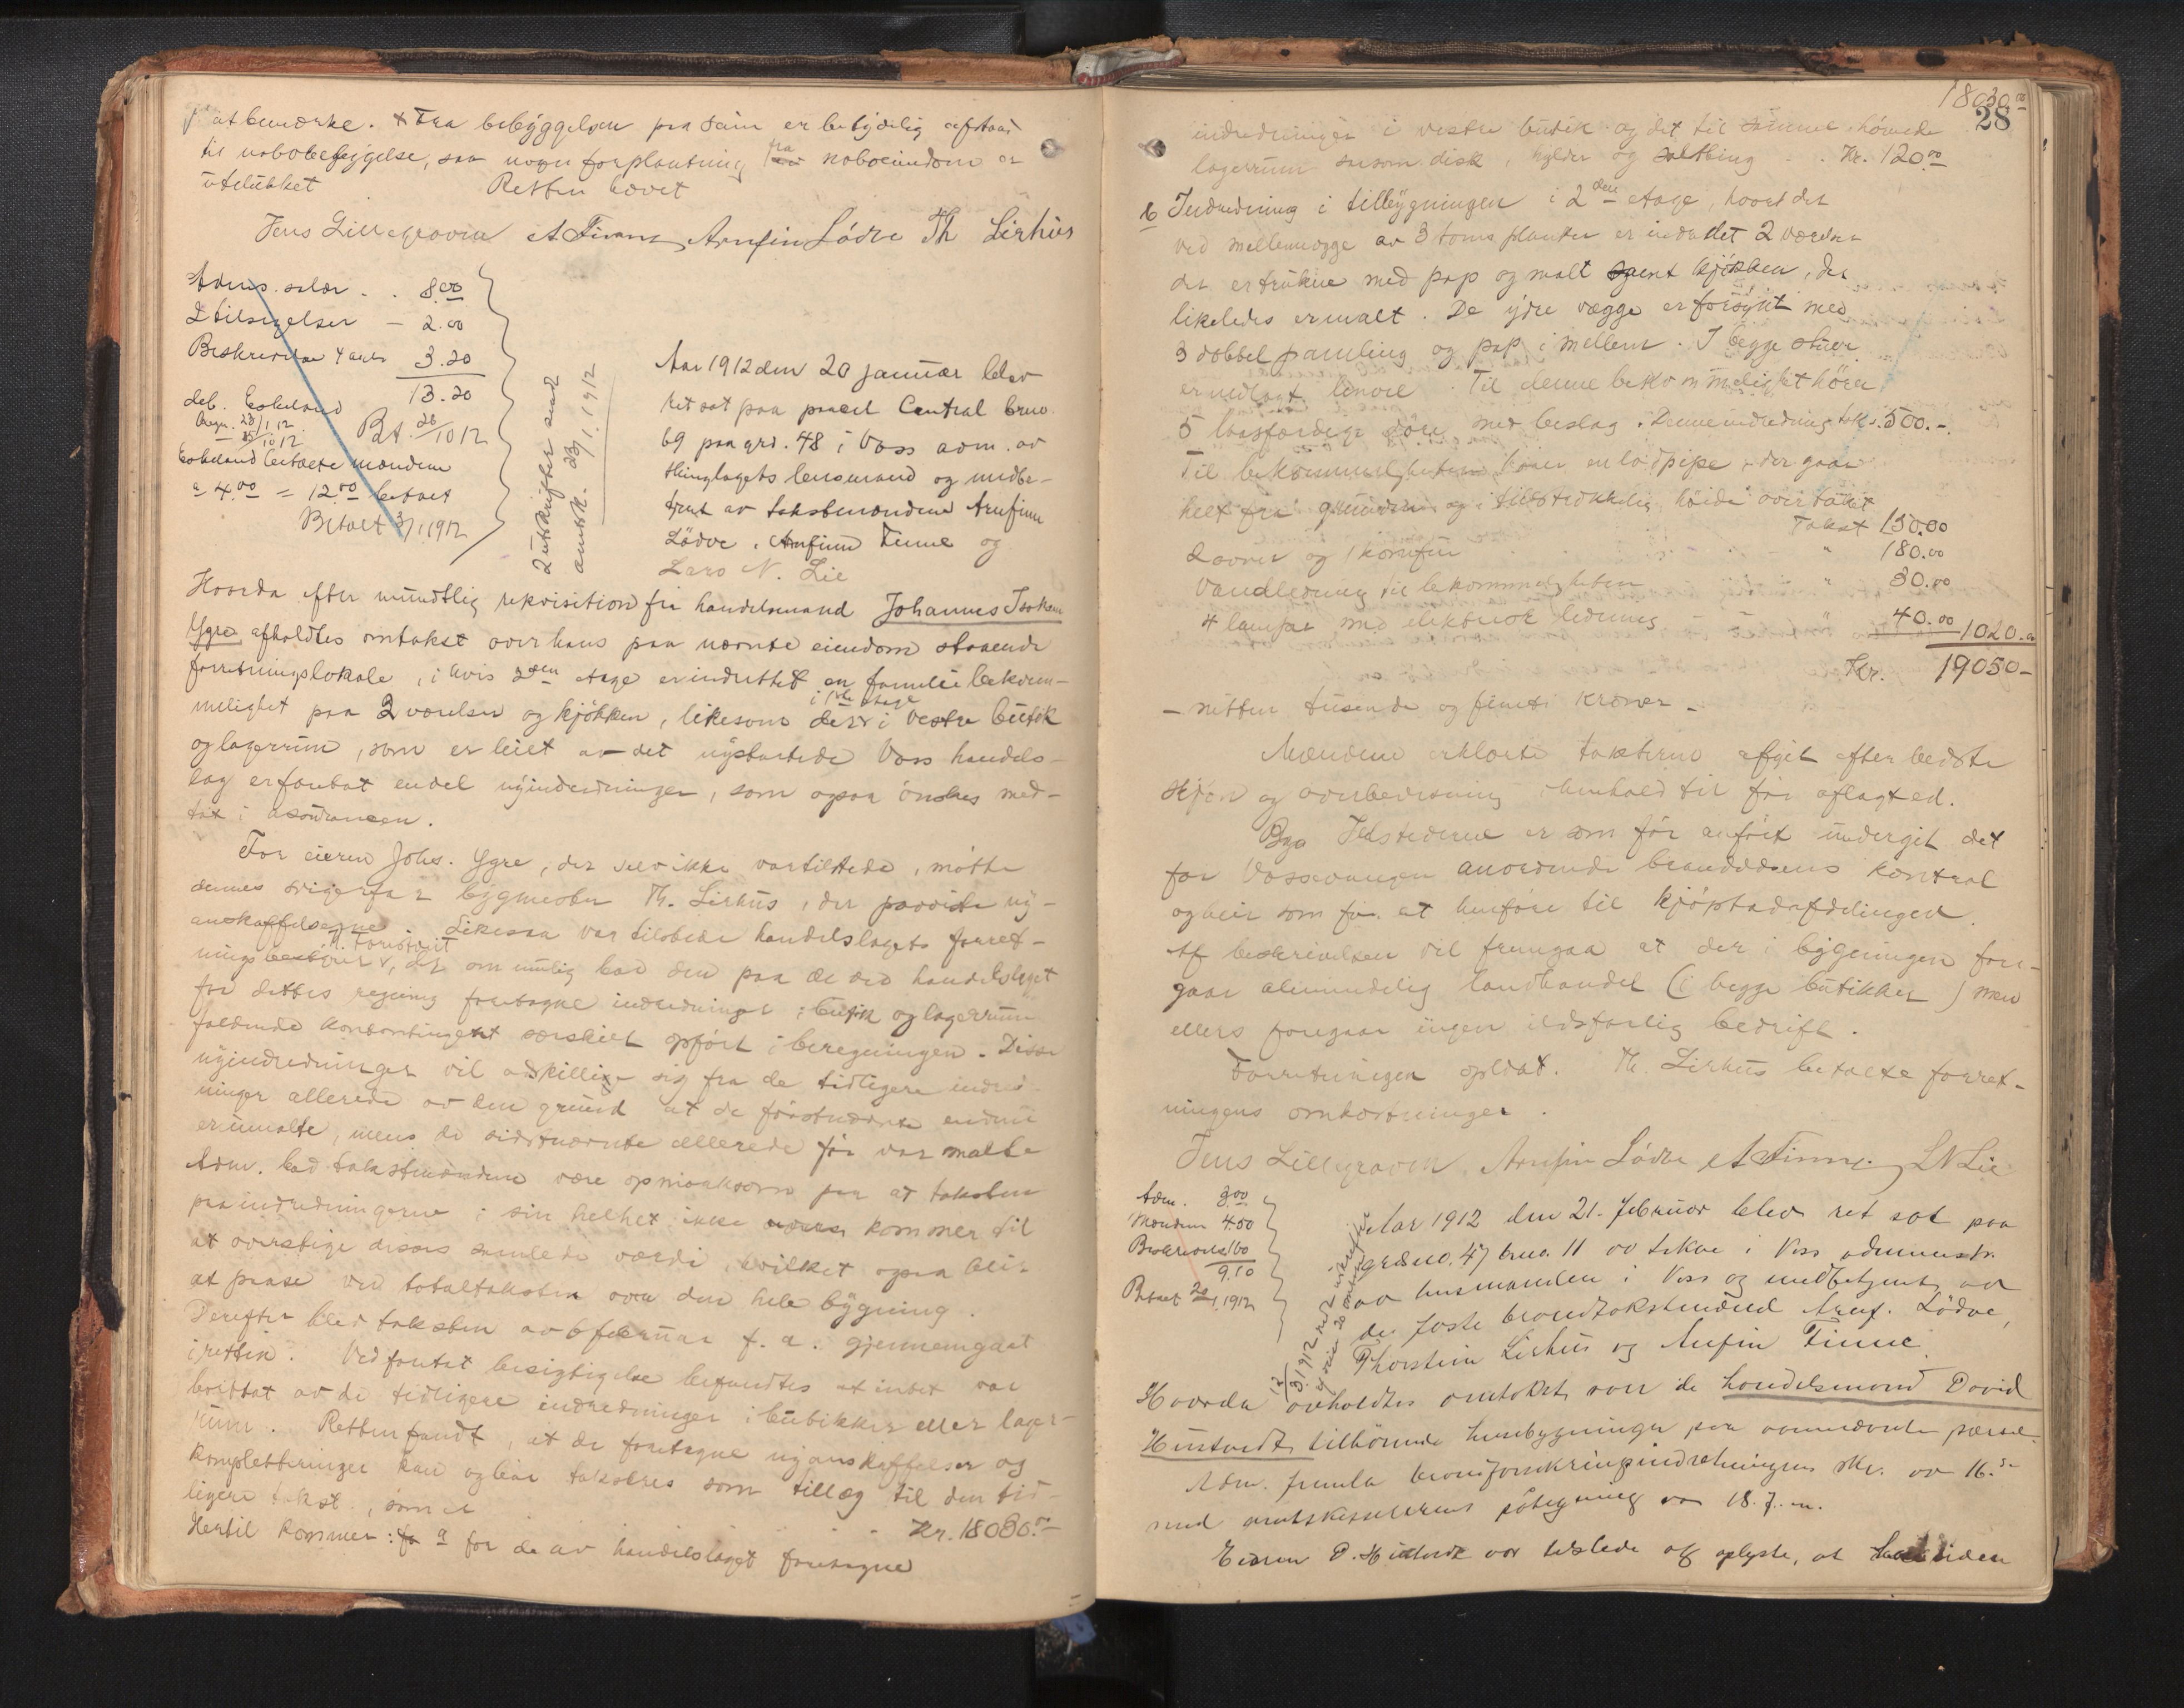 at bemærke. Fra bebyggelsen paa Seim er betydelig afstand
til nabobebygelse, saa nogen forplantning fra naboeiendom er
utelukket Retten hævet
Jens Lillegraven A Finne Arnfin Lødve Th Lirhus
Adms. salær . . 8.00
2 tilsigelser – 2.00
Beskrivelse 4 ark 3.20
13.20
deb. Eskeland
Regn. 23/1 12
Bet. 28/10 12
Eskeland betalte mændene
a 4.00 = 12.00 betalt
Betalt 3/1 1912
2 utskrifter sendt
amtsk. 23/1.1912
Aar 1912 den 20 januar blev
ret sat paa parcel Central brno.
69 paa grd. 48 i Voss adm. av
thinglagets lensmand og medbe-
tjent av takstmændene Arnfinn
Lødve, Arnfinn Finne og
Lars N. Lie
Hvorda efter mundtlig rekvisition fra handelsmand Johannes Isaksen
Ygre afholdtes omtakst over hans paa nævnte eiendom staaende
forretningslokale, i hvis 2den etage er indrettet en familie bekvem-
melighet paa 2 værelser og kjøkken, likesom der i 1ste etage i vestre butik
og lagerrum, som er leiet av det nystartede Voss handels-
lag er foretat endel nyindredninger, som ogsaa ønskes med-
tat i assurancen.
For eieren Johs. Ygre, der selv ikke var tilstede, møtte
dennes svigerfar bygmester Th. Lirhus, der paaviste ny-
anskaffelserne. Likesaa var tilstede handelslagets forret-
nings bestyrer, der om mulig bad den paa de ved handelslaget
for dettes regning foretagne indredninger i butik og lagerrum
faldende kontingent særskilt opført i beregningen. Disse
nyindredninger vil adskille sig fra de tidligere indred-
ninger allerede av den grund at de førstnævnte endnu
er umalte, mens de sidstnævnte allerede før var malte
Adm. bad takstmændene være opmerksom paa at taksten
paa indredningerne i sin helhet ikke kommer til
at overstige disses samlede værdi, hvilket ogsaa blir
at paase ved totaltaksten over den hele bygning.
Derefter blev taksten av 6 februar f. a. gjennemgaat
i retten. Ved foretat besigtigelse befandtes at intet var
borttat av de tidligere indredninger i butikker eller lager-
rum. Retten fandt, at de foretagne nyanskaffelser og
kompletteringer kan og bør takseres som tillæg til den tid-
ligere takst, som er - Kr. 18030.00
Hertil kommer: a for de av handelslaget foretagne
18030.00
28
indredninger i vestre butik og det til samme hørende
lagerrum saasom disk, hylder og saltbing . . Kr. 120.00
b Indredning i tilbygningen i 2den etage, hvor det
ved mellemvægge av 3 toms planker er indrettet 2 værelser
der er trukne med pap og malt samt kjøkken, der
likeledes er malt. De ydre vægge er forsynt med
3 dobbel paneling og pap i mellem. I begge stuer
er nedlagt linole. Til denne bekvemmelighet hører
5 laasfærdige døre med beslag. Denne indredning tak. 500.-
Til bekvemmeligheten hører en lodpipe, der gaar
helt fra grunden og i tilstrekkelig høide over taket
Takst 150.00
2 ovner og 1 komfur " 180.00
Vandledning til bekvemmeligheten " 30.00
4 lamper med elektrisk ledning " 40.00 1020.00
Kr. 19050-
- nitten tusende og femti kroner -
Mændene erklærte taksterne afgit efter bedste
skjøn og overbevisning i henhold til før aflagt ed.
Ildstederne er som før anført undergit det
for Vossevangen anordnede brandvæsens kontrol
og blir som før at henføre til kjøpstadafdelingen.
Af beskrivelsen vil fremgaa at der i bygningen fore-
gaar almindelig landhandel (i begge butikker) men
ellers foregaar ingen ildsfarlig bedrift.
Forretningen oplæst. Th. Lirhus betalte forret-
ningens omkostninger.
Jens Lillegraven, Arnfin Lødve A Finne, L N Lie
Adm. 3.00
Mændene 4.50
Beskrivelse 1.60
9.10
Betalt 20/1 1912
Aar 1912 den 21. februar blev ret sat paa
grdsno. 47 brno. 11 i Voss administr.
av lensmanden i Voss og medbetjent av
de faste brandtakstmænd Arnf. Lødve,
Thorstein Lirhus og Arnfin Finne.
Hvorda avholdtes omtakst over de handelsmand David
Hustvedt tilhørende husebygninger paa ovennævnte parcel.
Adm. fremla brandforsikringsindretningens skr. av 16. ds
med amtskassererens påtegning av 18. s. m.
Eieren D. Hustvedt var tilstede og oplyste, at siden